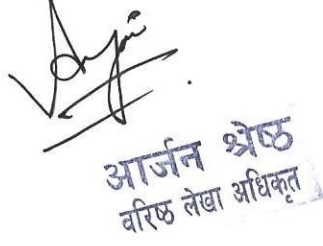 आर्जन श्रेष्ठ
वरिष्ठ लेखा अधिकृत